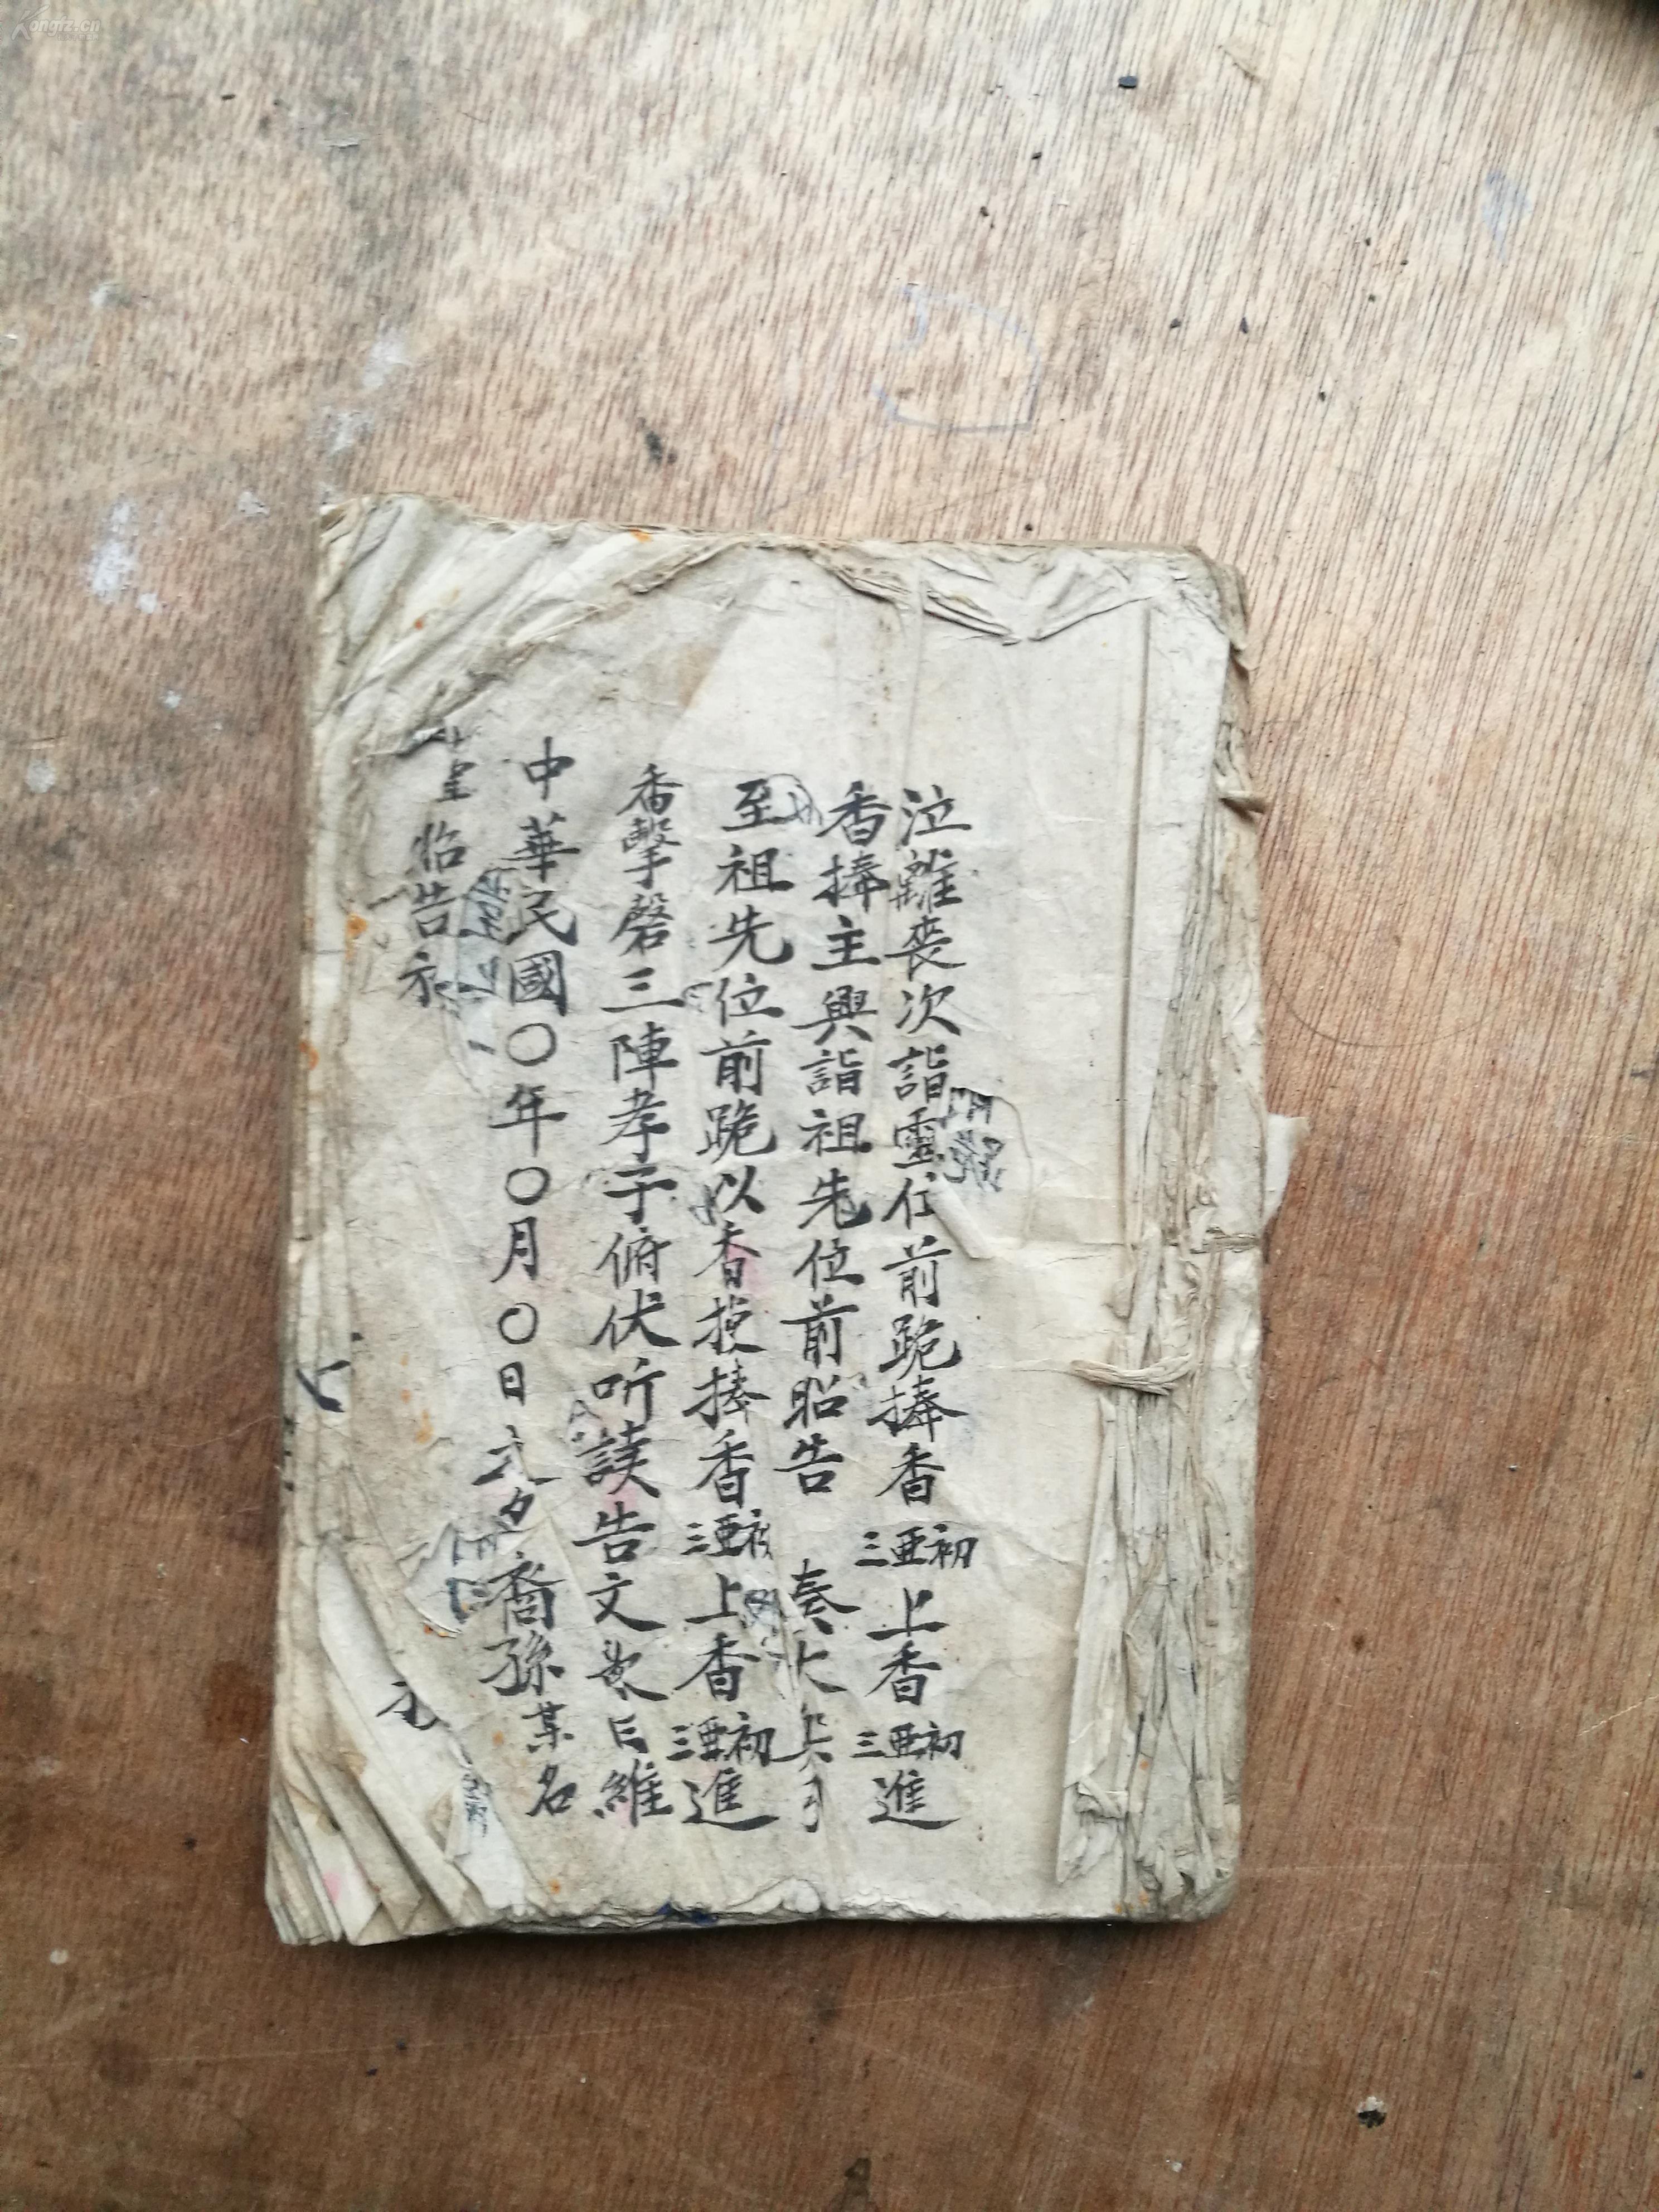 泣離喪次詣靈位前跪捧香 初亞三 上香 初亞三 進
香捧主興詣祖先位前昭告 奏大
至祖先位前跪以香授捧香 初亞三 上香 初亞三 進
香擊磬三陣孝子俯伏听讀告文歌曰維
中華民國〇年〇月〇日 裔孫某名
昭告
kongfz.cn